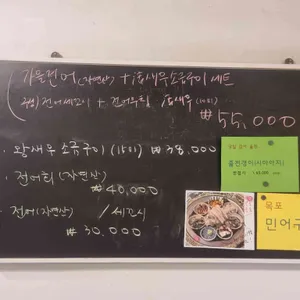 가을전어(자연산) + 왕새우소금구이 세트
전어세꼬시 + 전어무침
(15미)
₩55,000
왕새우 소금구이 (15미) ₩38,000
전어회 (자연산)
₩40,000
전어(자연산) / 세꼬시
₩30,000
목포
민어